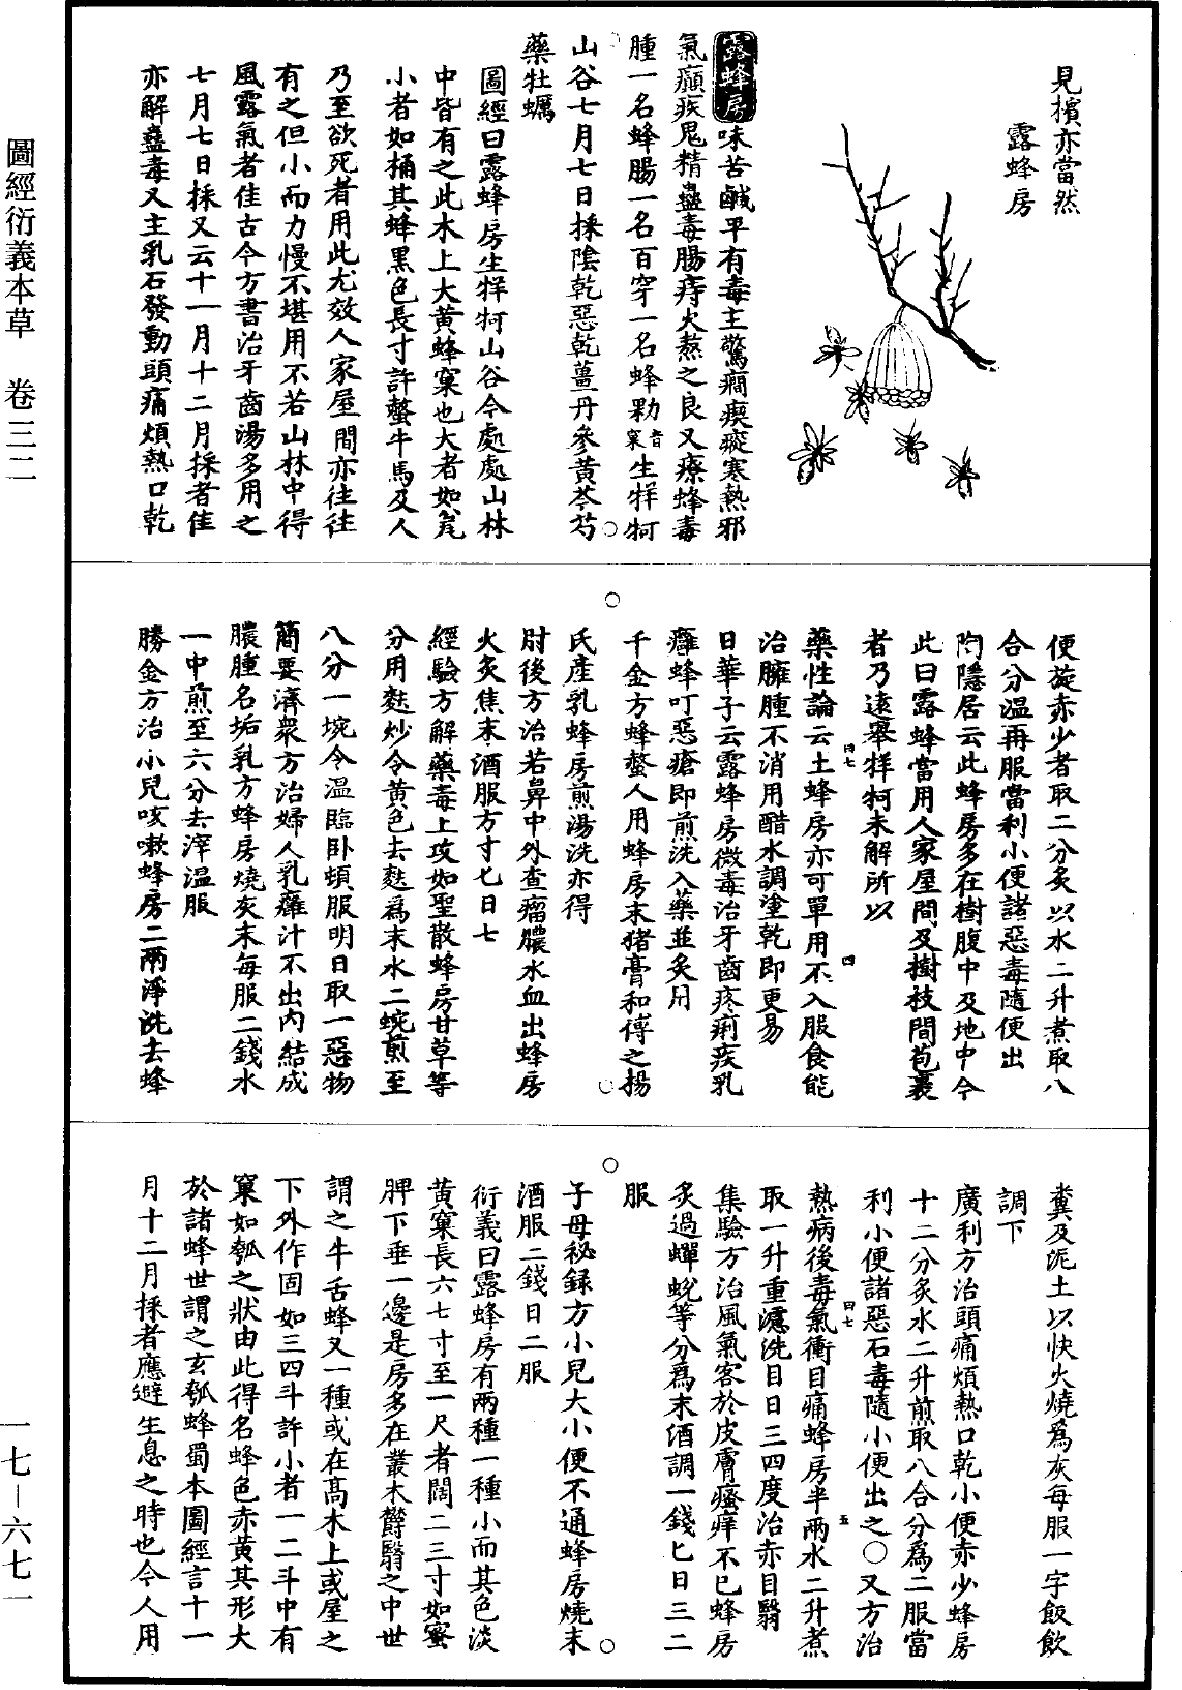 見檳亦當然
露蜂房
露蜂房味苦鹹平有毒主驚癇瘈瘲寒熱邪
氣癲疾鬼精蠱毒腸痔火熬之良又療蜂毒
腫一名蜂腸一名百穿一名蜂勦音窠生牂牁
山谷七月七日採陰乾惡乾薑丹參黃芩芍
藥牡蠣
圖經曰露蜂房生牂牁山谷今處處山林
中皆有之此木上大黃蜂窠也大者如瓮
小者如桶其蜂黑色長寸許螫牛馬及人
乃至欲死者用此尤效人家屋間亦往往
有之但小而力慢不堪用不若山林中得
風露氣者佳古今方書治牙齒湯多用之
七月七日採又云十一月十二月採者佳
亦解蠱毒又主乳石發動頭痛煩熱口乾
便旋赤少者取二分炙以水二升煮取八
合分溫再服當利小便諸惡毒隨便出
陶隱居云此蜂房多在樹腹中及地中今
此曰露蜂當用人家屋間及樹枝間苞裹
者乃遠舉牂牁未解所以
藥性論云土蜂房亦可單用不入服食能
治臃腫不消用醋水調塗乾即更易
日華子云露蜂房微毒治牙齒疼痢疾乳
癰蜂叮惡瘡即煎洗入藥並炙用
千金方蜂螫人用蜂房末猪膏和傅之揚
氏產乳蜂房煎湯洗亦得
肘後方治若鼻中外查瘤膿水血出蜂房
火炙焦末酒服方寸匕日七
經驗方解藥毒上攻如聖散蜂房甘草等
分用麩炒令黃色去麩為末水二椀煎至
八分一埦令溫臨卧頓服明日取一惡物
簡要濟衆方治婦人乳癰汁不出內結成
膿腫名垢乳方蜂房燒灰末每服二錢水
一中煎至六分去滓溫服
勝金方治小兒咳嗽蜂房二兩淨洗去蜂
糞及泥土以快火燒為灰每服一字飯飲
調下
廣利方治頭痛煩熱口乾小便赤少蜂房
十二分炙水二升煎取八合分為二服當
利小便諸惡石毒隨小便出之〇又方治
熱病後毒氣衝目痛蜂房半兩水二升煮
取一升重濾洗目日三四度治赤目翳
集驗方治風氣客於皮膚瘙痒不已蜂房
炙過蟬蛻等分為末酒調一錢匕日三二
服
子母秘録方小兒大小便不通蜂房燒末
酒服二錢日二服
衍義曰露蜂房有兩種一種小而其色淡
黃窠長六七寸至一尺者闊二三寸如蜜
脾下垂一邊是房多在叢木鬱翳之中世
謂之牛舌蜂又一種或在高木上或屋之
下外作固如三四斗許小者一二斗中有
窠如瓠之狀由此得名蜂色赤黃其形大
於諸蜂世謂之玄瓠蜂蜀本圖經言十一
月十二月採者應避生息之時也今人用
圖經衍義本草 卷三二
一七－六七一